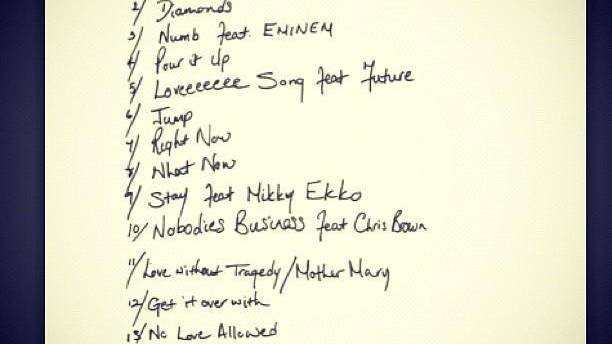 2/ Diamonds
3/ Numb feat. EMINEM
4/ Pour it Up
5/ Loveeeeeee Song feat Future
6/ Jump
7/ Right Now
8/ What Now
9/ Stay feat Mikky Ekko
10/ Nobodies Business feat Chris Brown
11/ Love without Tragedy/Mother Mary
12/ Get it over with
13/ No Love Allowed